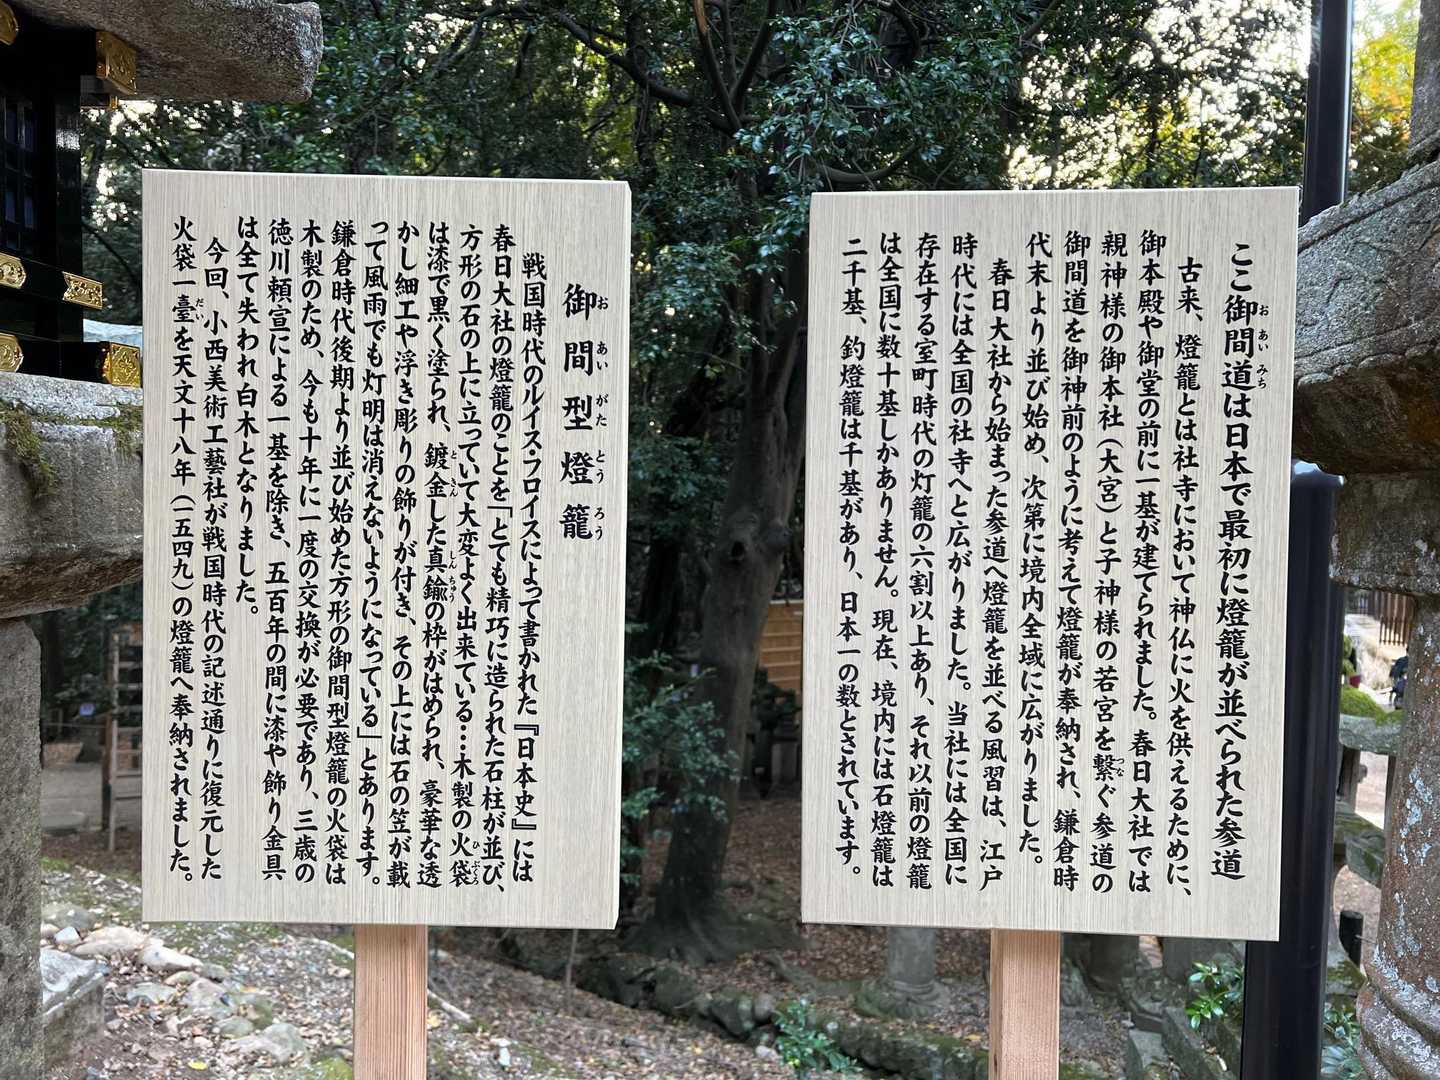 ここ御間道は日本で最初に燈籠が並べられた参道
おあいみち
古来、燈籠とは社寺において神仏に火を供えるために、
御本殿や御堂の前に一基が建てられました。春日大社では
親神様の御本社（大宮）と子神様の若宮を繋ぐ参道の
つな
御間道を御神前のように考えて燈籠が奉納され、鎌倉時
代末より並び始め、次第に境内全域に広がりました。
春日大社から始まった参道へ燈籠を並べる風習は、江戸
時代には全国の社寺へと広がりました。当社には全国に
存在する室町時代の灯籠の六割以上あり、それ以前の燈籠
は全国に数十基しかありません。現在、境内には石燈籠は
二千基、釣燈籠は千基があり、日本一の数とされています。
御間型燈籠
おあいがたとうろう
戦国時代のルイス・フロイスによって書かれた『日本史』には
春日大社の燈籠のことを「とても精巧に造られた石柱が並び、
方形の石の上に立っていて大変よく出来ている…木製の火袋
ひぶくろ
は漆で黒く塗られ、鍍金した真鍮の枠がはめられ、豪華な透
ときんしんちゅう
かし細工や浮き彫りの飾りが付き、その上には石の笠が載
って風雨でも灯明は消えないようになっている」とあります。
鎌倉時代後期より並び始めた方形の御間型燈籠の火袋は
木製のため、今も十年に一度の交換が必要であり、三歳の
徳川頼宣による一基を除き、五百年の間に漆や飾り金具
は全て失われ白木となりました。
今回、小西美術工藝社が戦国時代の記述通りに復元した
火袋一臺を天文十八年（一五四九）の燈籠へ奉納されました。
だい